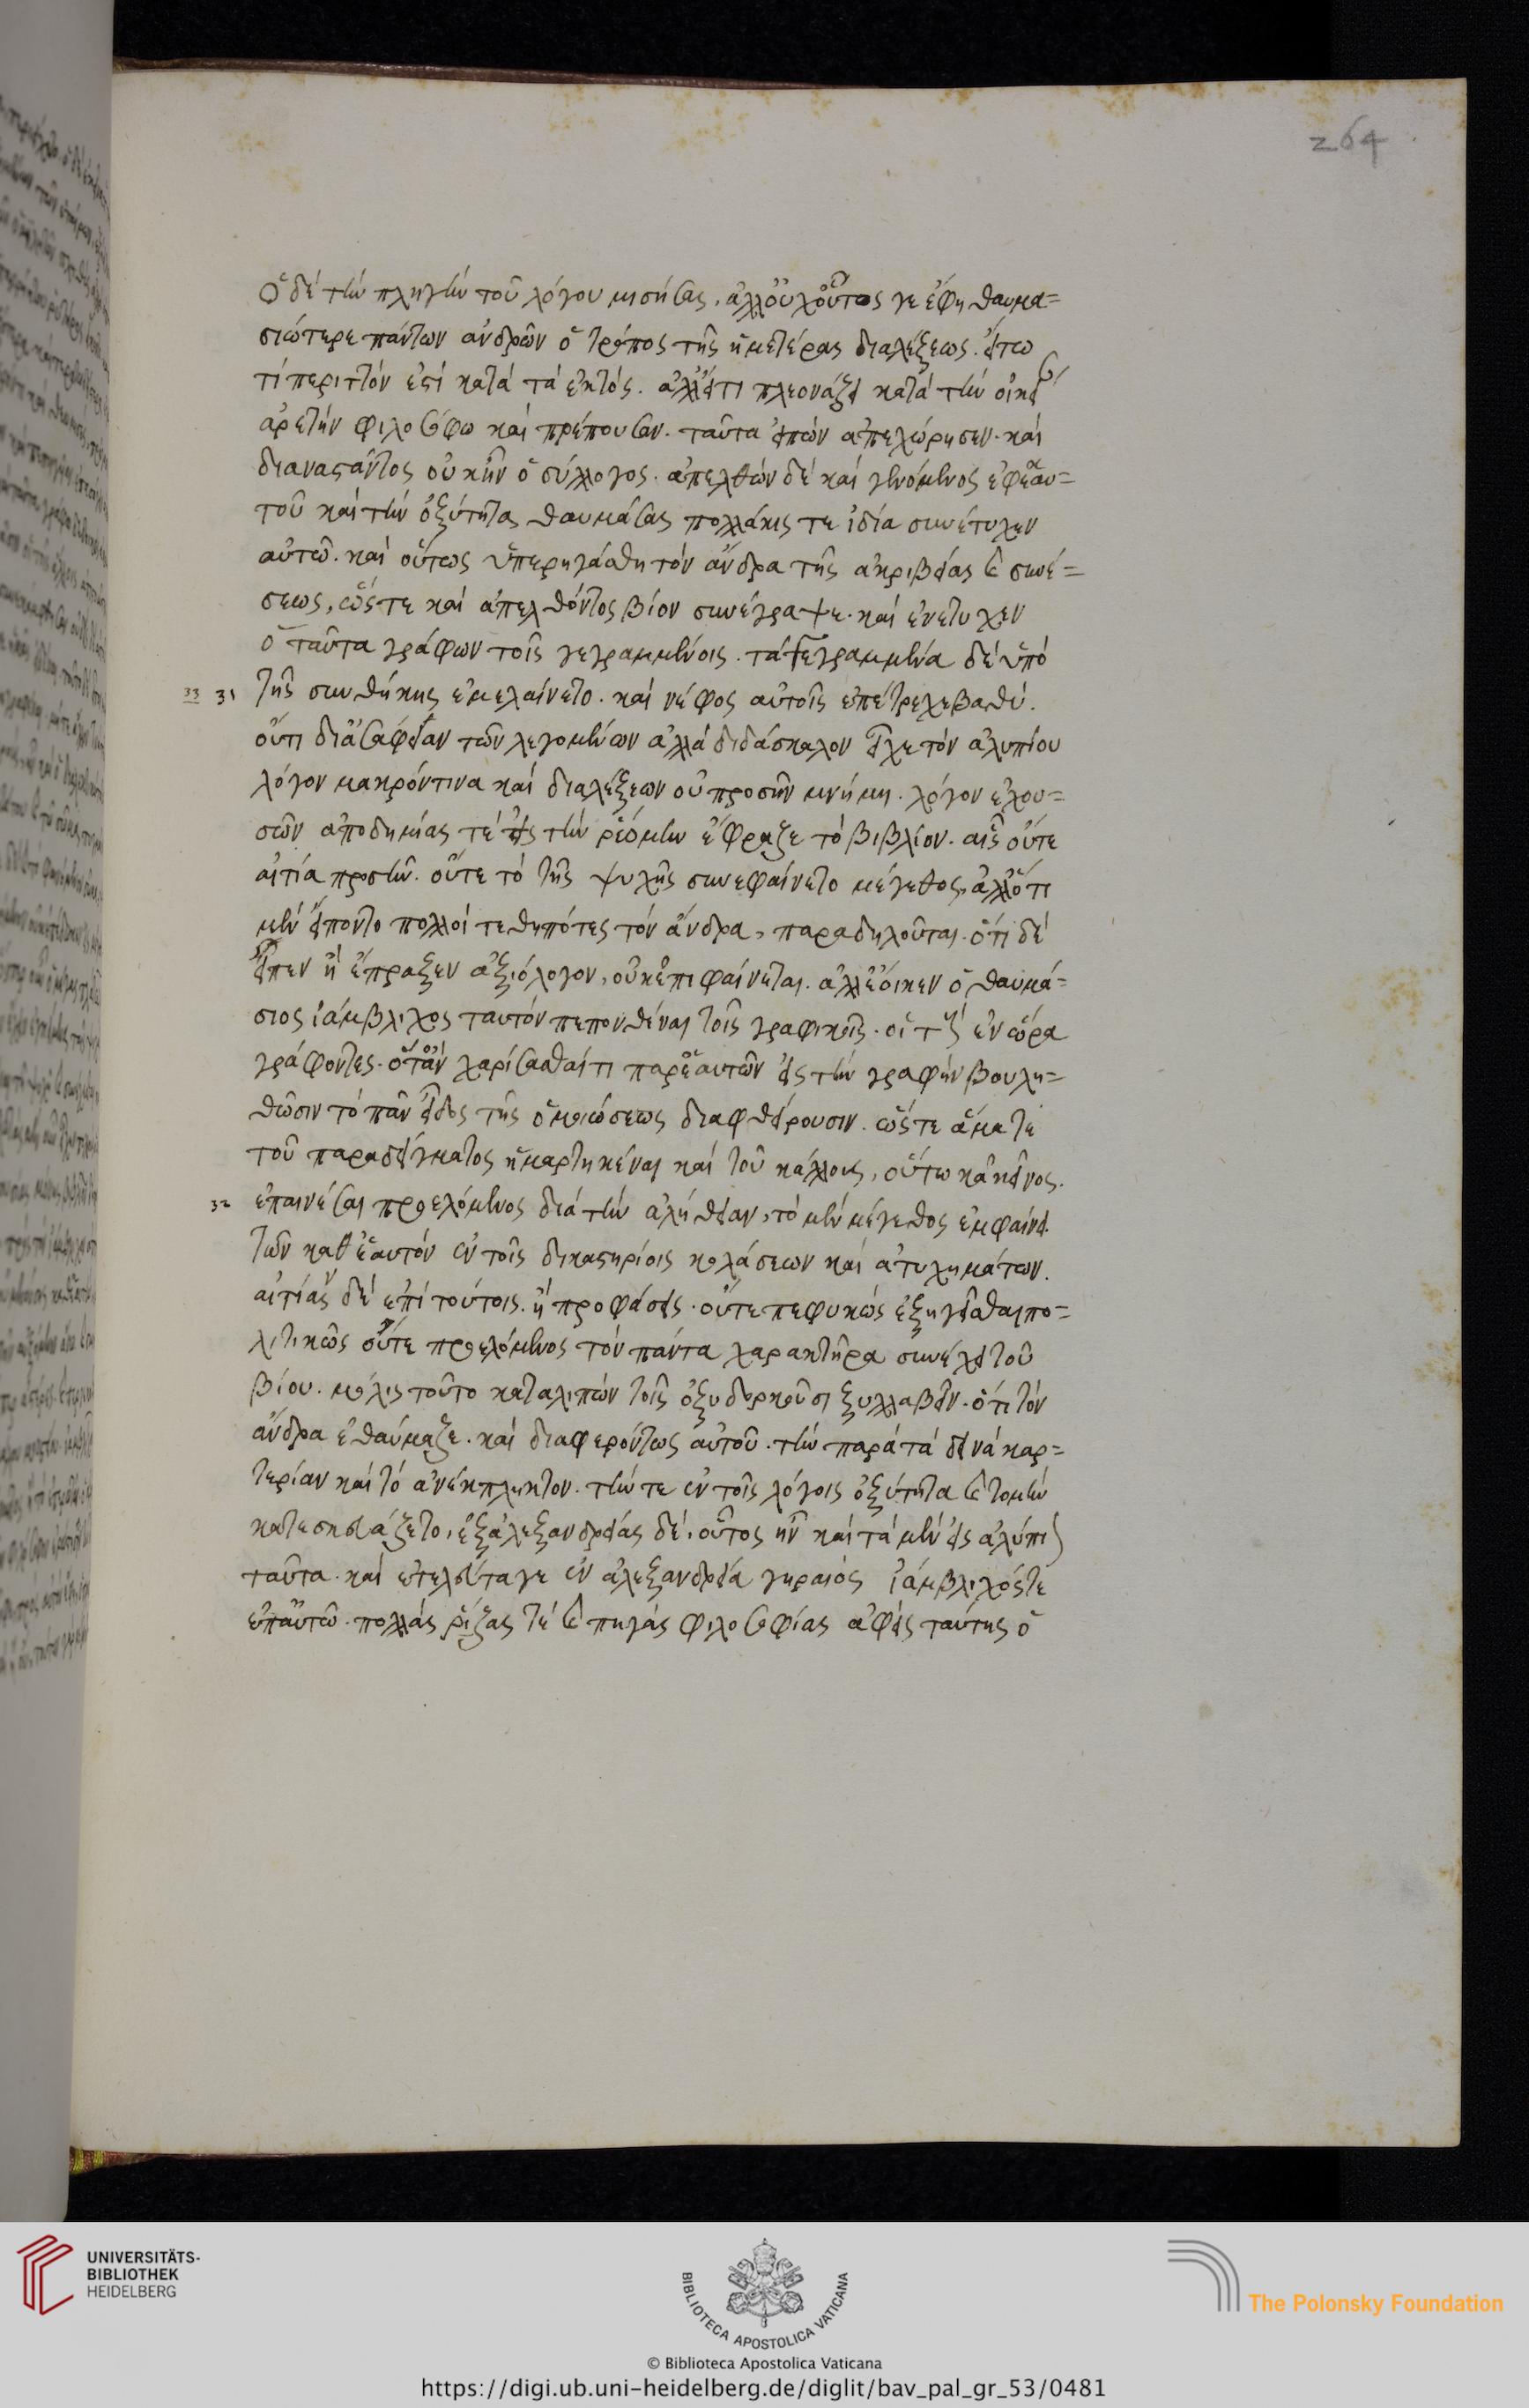 264
Ὁ δὲ τὴν πληγὴν τοῦ λόγου μισήσας, ἀλλ' οὐχ οὗτος γε ἔφη θαυμα=
σιώτερε πάντων ἀνδρῶν ὁ τρόπος τῆς ἡμετέρας διαλέξεως. εἴτω
τί περιττόν ἐστί κατὰ τὰ ἐκτός. ἀλλ' εἴτι πλεονάζει κατὰ τὴν οἰκεί
ἀρετὴν φιλοσόφω καὶ πρέπουσαν. ταῦτα εἰπὼν ἀπεχώρησεν. καὶ
διαναστάντος οὐκ ἦν ὁ σύλλογος. ἀπελθὼν δὲ καὶ γενόμενος ἐφ' ἑαυ=
τοῦ καὶ τὴν ὀξύτητα θαυμάσας πολλάκις τε ἰδία συνέτυχεν
αὐτῶ. καὶ οὕτως ὑπερηγάσθη τὸν ἄνδρα τῆς ἀκριβείας καὶ συνέ=
σεως, ὥστε καὶ ἀπελθόντος βίον συνέγραψε. καὶ ἐνετυχεν
ὁ ταῦτα γράφων τοῖς γεγραμμένοις. τὰ γεγραμμένα δὲ ὑπὸ
33 31 τῆς συνθήκης ἐμελαίνετο. καὶ νέφος αὐτοῖς ἐπέτρεχε βαθύ.
οὔτι δι' ἀσάφειαν τῶν λεγομένων ἀλλὰ διδάσκαλον εἶχε τὸν ἀλυπίου
λόγον μακρόν τινα καὶ διαλέξεων οὐ προσῆν μνήμη. λόγον ἐχου=
σῶν ἀποδημίας τέ εἰς τὴν ῥώμην ἔφραζε τὸ βιβλίον. αἷς οὔτε
αἰτία προσῆν. οὔτε τὸ τῆς ψυχῆς συνεφαίνετο μέγεθος, ἀλλ' ὅτι
μὲν εἵποντο πολλοὶ τεθηπότες τὸν ἄνδρα, παραδηλοῦται. ὅτι δὲ
εἶπεν ἢ ἔπραξεν ἀξιόλογον, οὐκ ἐπιφαίνεται. ἀλλ' ἔοικεν ὁ θαυμά=
σιος ἰάμβλιχος ταυτὸν πεπονθέναι τοῖς γραφικοῖς. οἳ τοὺς ἐν ὥρα
γράφοντες. ὅταν χαρίσασθαί τι παρ' ἑαυτῶν εἰς τὴν γραφὴν βουλη=
θῶσιν τὸ πᾶν εἶδος τῆς ὁμοιώσεως διαφθείρουσιν. ὥστε ἅμα τε
τοῦ παραδείγματος ἡμαρτηκέναι καὶ τοῦ κάλλους, οὕτω κἀκεῖνος.
32 ἐπαινέσαι προελόμενος διὰ τὴν ἀλήθειαν, τὸ μὲν μέγεθος ἐμφαίνει
τῶν καθ' ἑαυτὸν ἐν τοῖς δικαστηρίοις κολάσεων καὶ ἀτυχημάτων.
αἰτίας δὲ ἐπὶ τούτοις. ἢ προφάσεις. οὔτε πεφυκὼς ἐξηγεῖσθαι πο=
λιτικῶς οὔτε προελόμενος τὸν πάντα χαρακτῆρα συνέχει τοῦ
βίου. μόλις τοῦτο καταλιπὼν τοῖς ὀξυδορκοῦσι ξυλλαβεῖν. ὅτι τὸν
ἄνδρα ἐθαύμαζε. καὶ διαφερόντως αὐτοῦ. τὴν παρὰ τὰ δεινὰ καρ=
τερίαν καὶ τὸ ἀνέκπληκτον. τήν τε ἐν τοῖς λόγοις ὀξύτητα καὶ τομὴν
κατεσκευάζετο, ἐξ ἀλεξανδρείας δέ, οὗτος ἦν καὶ τὰ μὲν εἰς ἀλύπι
ταῦτα. καὶ ἐτελεύτα γε ἐν ἀλεξανδρεία γηραιός ἰάμβλιχός τε
ἐπ' αὐτῶ. πολλὰς ῥίζας τέ καὶ πηγὰς φιλοσοφίας ἀφεὶς ταύτης ὁ
UNIVERSITÄTS-
BIBLIOTHEK
HEIDELBERG
BIBLIOTECA APOSTOLICA VATICANA
© Biblioteca Apostolica Vaticana
The Polonsky Foundation
https://digi.ub.uni-heidelberg.de/diglit/bav_pal_gr_53/0481